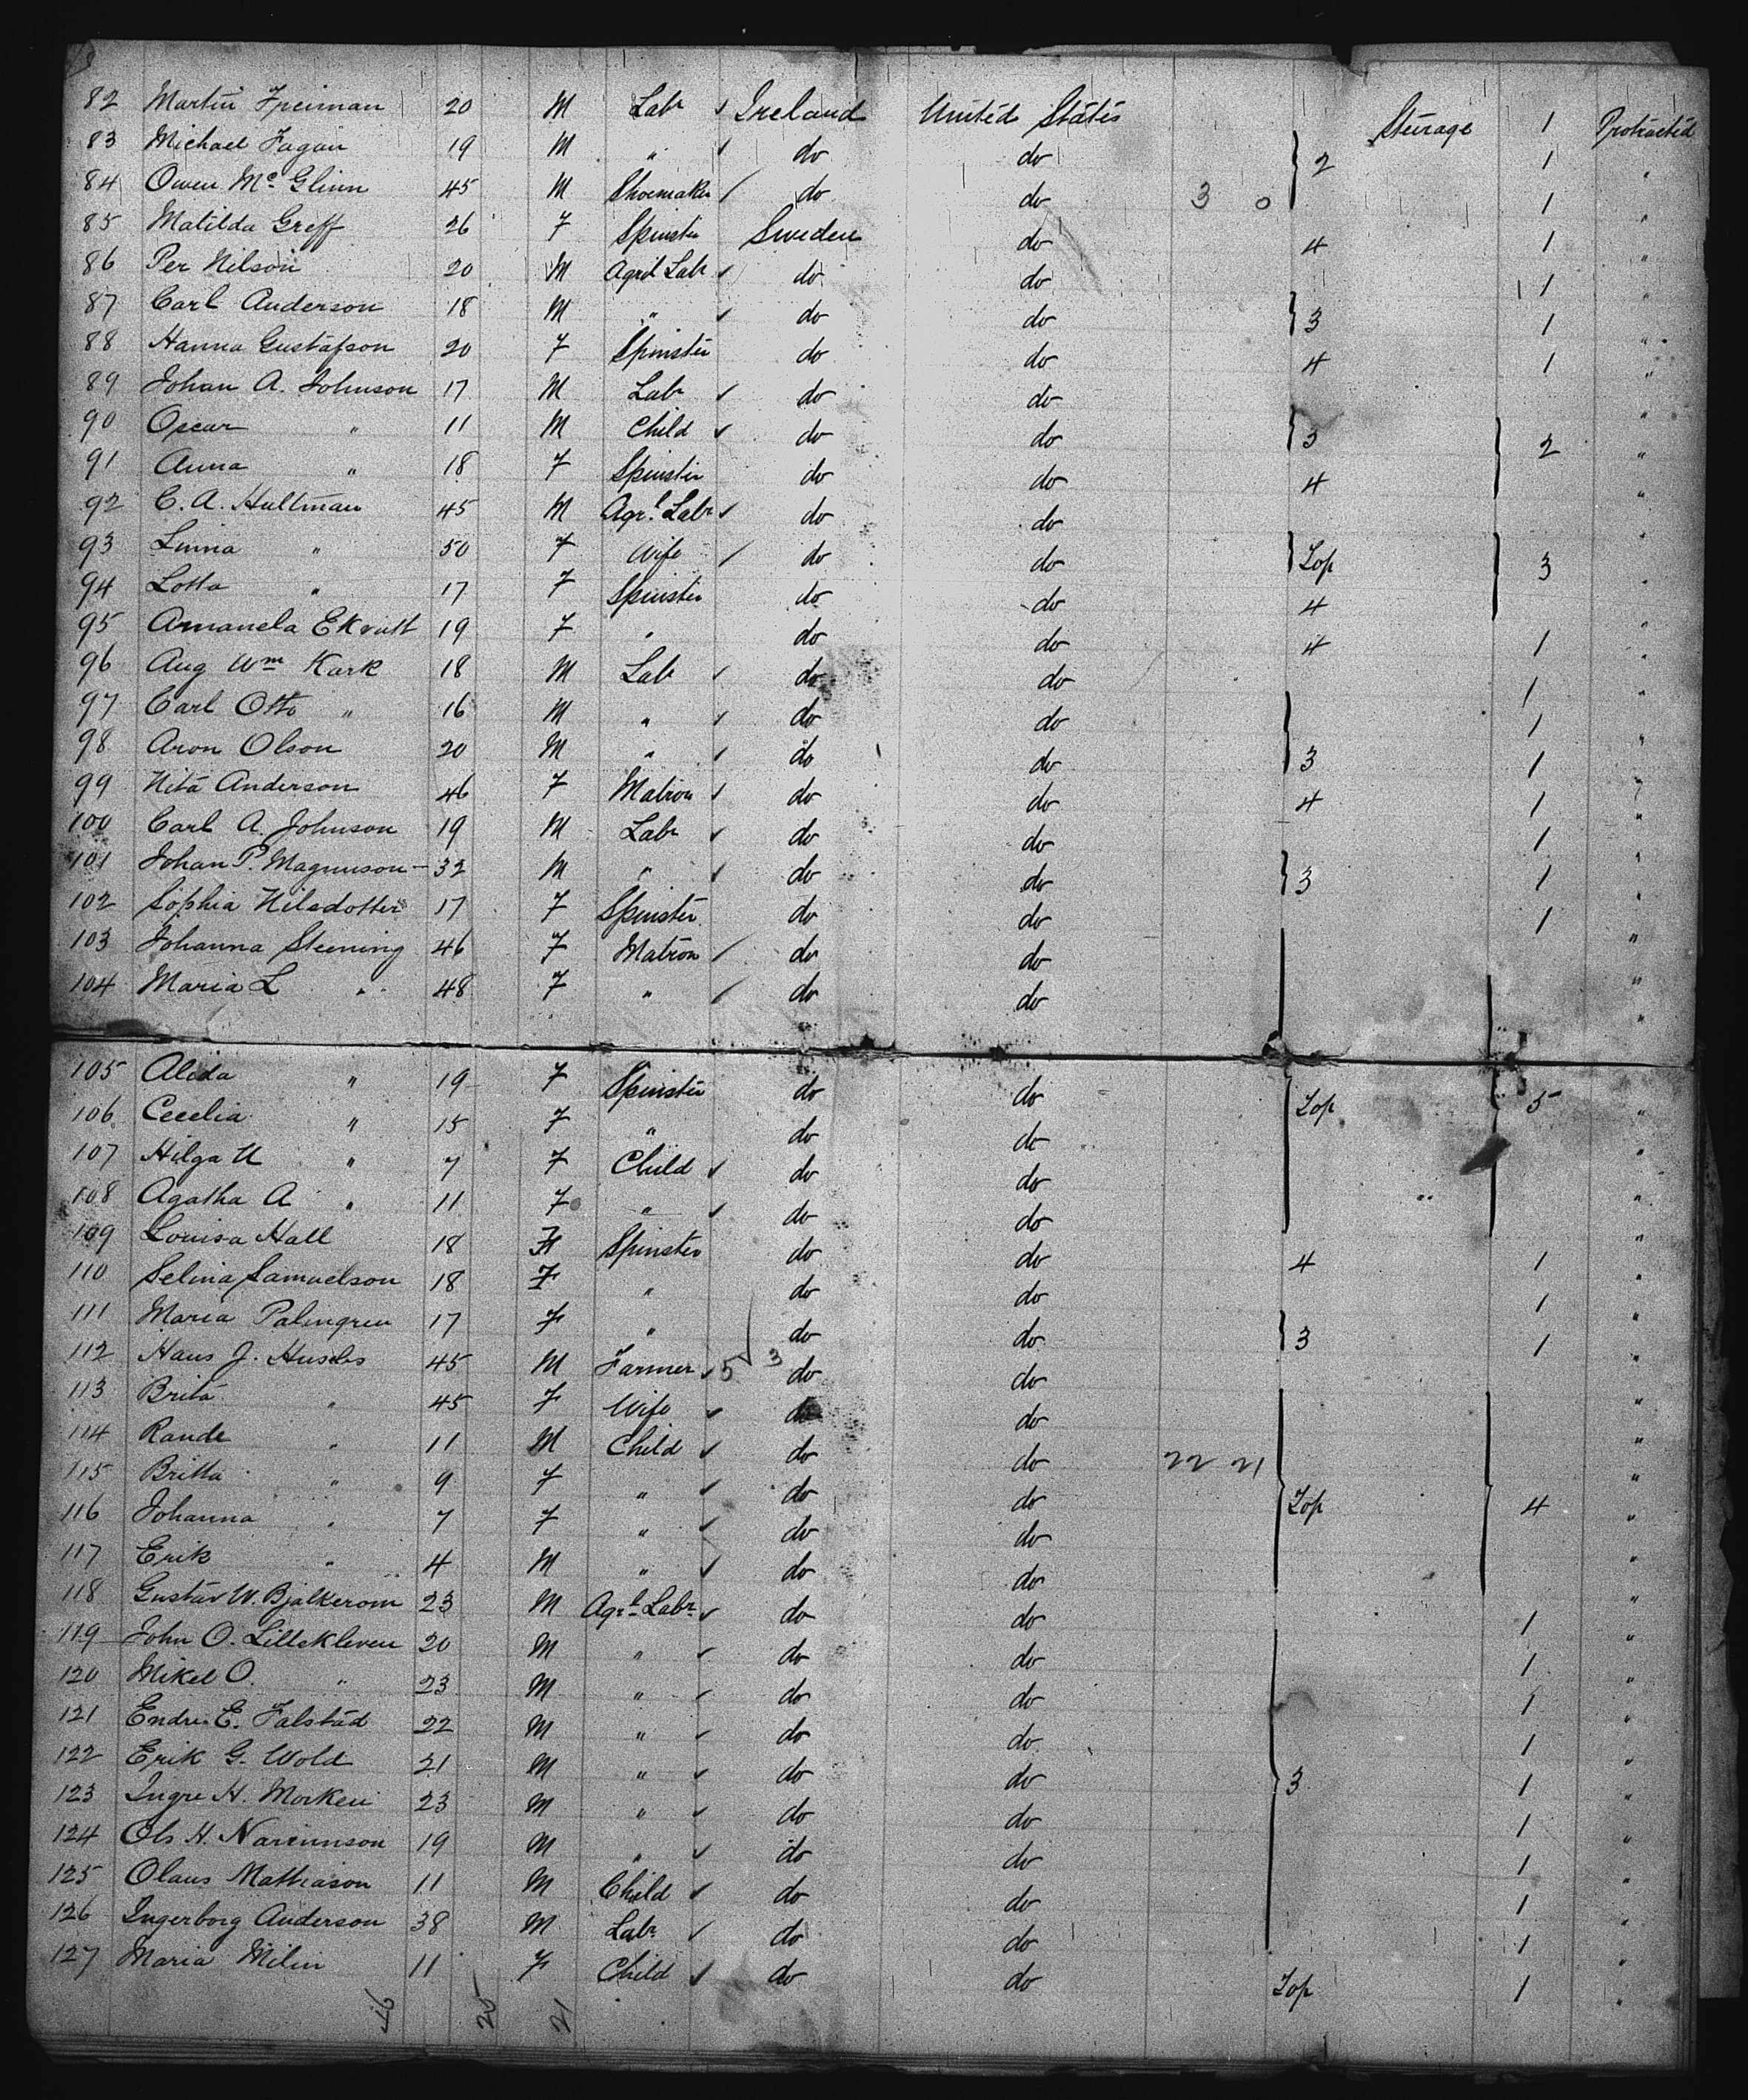 82 Martin Freiman 20 M Labr Ireland United States Steerage 1 Protracted
83 Michael Fagan 19 M " do do 2 1 "
84 Owen Mc Glinn 45 M Shoemaker do do 3 0 1 "
85 Matilda Greff 26 F Spinster Sweden do 4 1 "
86 Per Nilson 20 M Agril Labr do do 1 "
87 Carl Anderson 18 M " do do 3 1 "
88 Hanna Gustafson 20 F Spinster do do 4 1 "
89 Johan A. Johnson 17 M Labr do do "
90 Oscar " 11 M Child do do 3 2 "
91 Anna " 18 F Spinster do do 4 "
92 C. A. Hultman 45 M Agrl Labr do do "
93 Linna " 50 F Wife do do Top 3 "
94 Lotta " 17 F Spinster do do 4 "
95 Amanela Ekvatt 19 F " do do 4 1 "
96 Aug Wm Kark 18 M Labr do do 1 "
97 Carl Otto " 16 M " do do 1 "
98 Aron Olson 20 M " do do 3 1 "
99 Nita Anderson 46 F Matron do do 4 1 "
100 Carl A. Johnson 19 M Labr do do 1 "
101 Johan P. Magnuson 32 M " do do 3 1 "
102 Sophia Nilsdotter 17 F Spinster do do 1 "
103 Johanna Steening 46 F Matron do do "
104 Maria L " 48 F " do do "
105 Alida " 19 F Spinster do do Top 5 "
106 Cecelia " 15 F " do do "
107 Hilga U " 7 F Child do do "
108 Agatha A " 11 F " do do "
109 Louisa Hall 18 F Spinster do do 4 1 "
110 Selina Samuelson 18 F " do do 1 "
111 Maria Palingren 17 F " do do 3 1 "
112 Hans J. 45 M Farmer 5 3 do do "
113 Brita " 45 F Wife do do "
114 Rande " 11 M Child do do 22 21 "
115 Britta " 9 F " do do "
116 Johanna " 7 F " do do Top 4 "
117 Erik " 4 M " do do "
118 Gustav W. Bjalkerom 23 M Agrl Labr do do 1 "
119 John O. Lillekleven 20 M " do do 1 "
120 Mikel O. " 23 M " do do 1 "
121 Endre E. Falstad 22 M " do do 1 "
122 Erik G. Wold 21 M " do do 3 1 "
123 Ingre H. Morken 23 M " do do 1 "
124 Ols H. 19 M " do do 1 "
125 Olaus Mathiason 11 M Child do do 1 "
126 Ingerborg Anderson 38 M Labr do do 1 "
127 Maria Milin 11 F Child do do Top 1 "
46 25 21